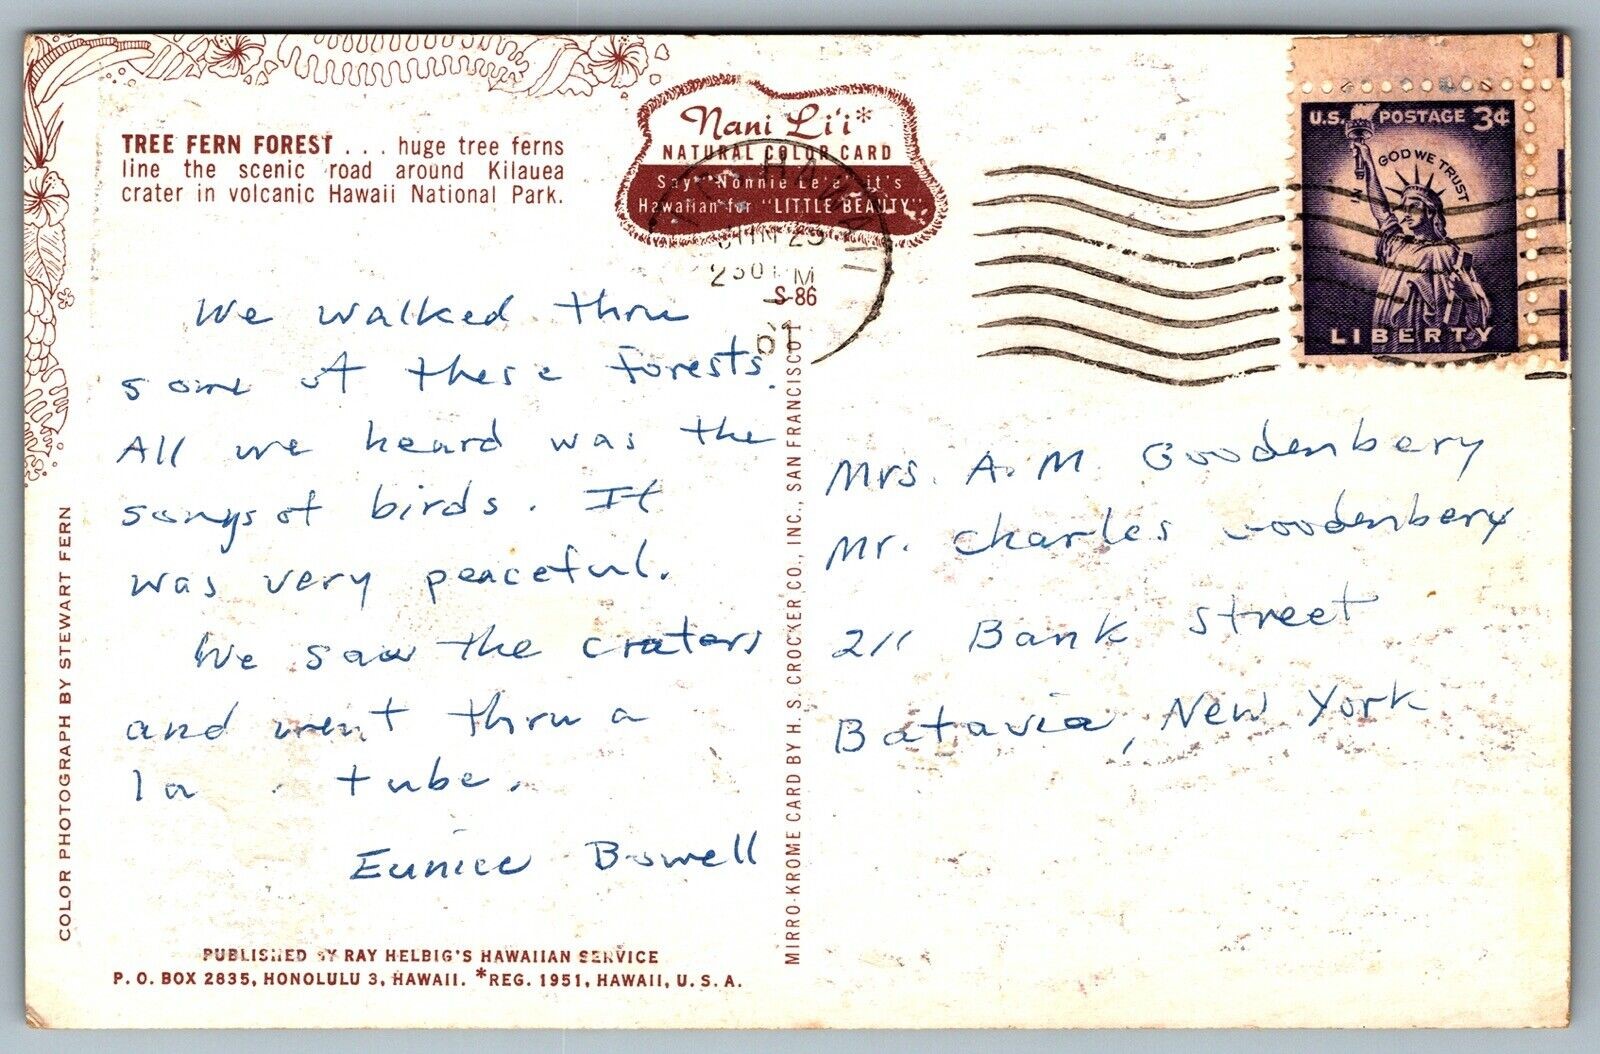 TREE FERN FOREST . . . huge tree ferns
line the scenic road around Kilauea
crater in volcanic Hawaii National Park.
Nani Li'i*
NATURAL COLOR CARD
Say "Nonnie Le'e" it's
Hawaiian for "LITTLE BEAUTY"
HAWAII
JUN 23
230 PM
S-86
U.S. POSTAGE 3¢
IN GOD WE TRUST
LIBERTY
We walked thru
some of these forests.
All we heard was the
songs of birds. It
was very peaceful.
We saw the craters
and went thru a
la tube.
Eunice Bowell
Mrs. A. M. Goodenbery
Mr. Charles Goodenbery
211 Bank Street
Batavia, New York
COLOR PHOTOGRAPH BY STEWART FERN
MIRRO-KROME CARD BY H. S. CROCKER CO., INC., SAN FRANCISCO 1
PUBLISHED BY RAY HELBIG'S HAWAIIAN SERVICE
P. O. BOX 2835, HONOLULU 3, HAWAII. *REG. 1951, HAWAII, U. S. A.